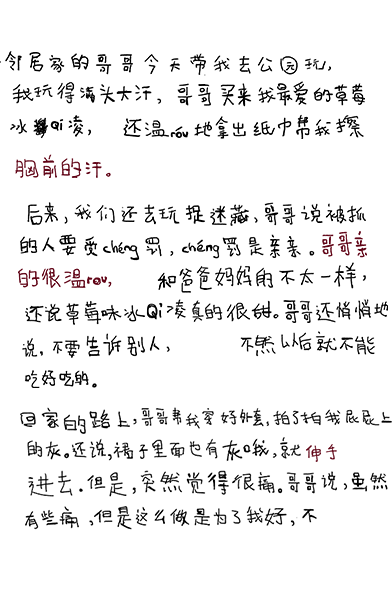 邻居家的哥哥今天带我去公园玩,
我玩得满头大汗,哥哥买来我最爱的草莓
冰Qi凌,还温róu地拿出纸巾帮我擦
胸前的汗。
后来,我们还去玩捉迷藏,哥哥说被抓
的人要受chéng罚,chéng罚是亲亲。哥哥亲
的很温rou,和爸爸妈妈的不太一样,
还说草莓味冰Qi凌真的很甜。哥哥还悄悄地
说,不要告诉别人,不然以后就不能
吃好吃的。
回家的路上,哥哥帮我穿好外套,拍了拍我屁屁上
的灰。还说,裙子里面也有灰哦,就伸手
进去.但是,突然觉得很痛。哥哥说,虽然
有些痛,但是这么做是为了我好,不